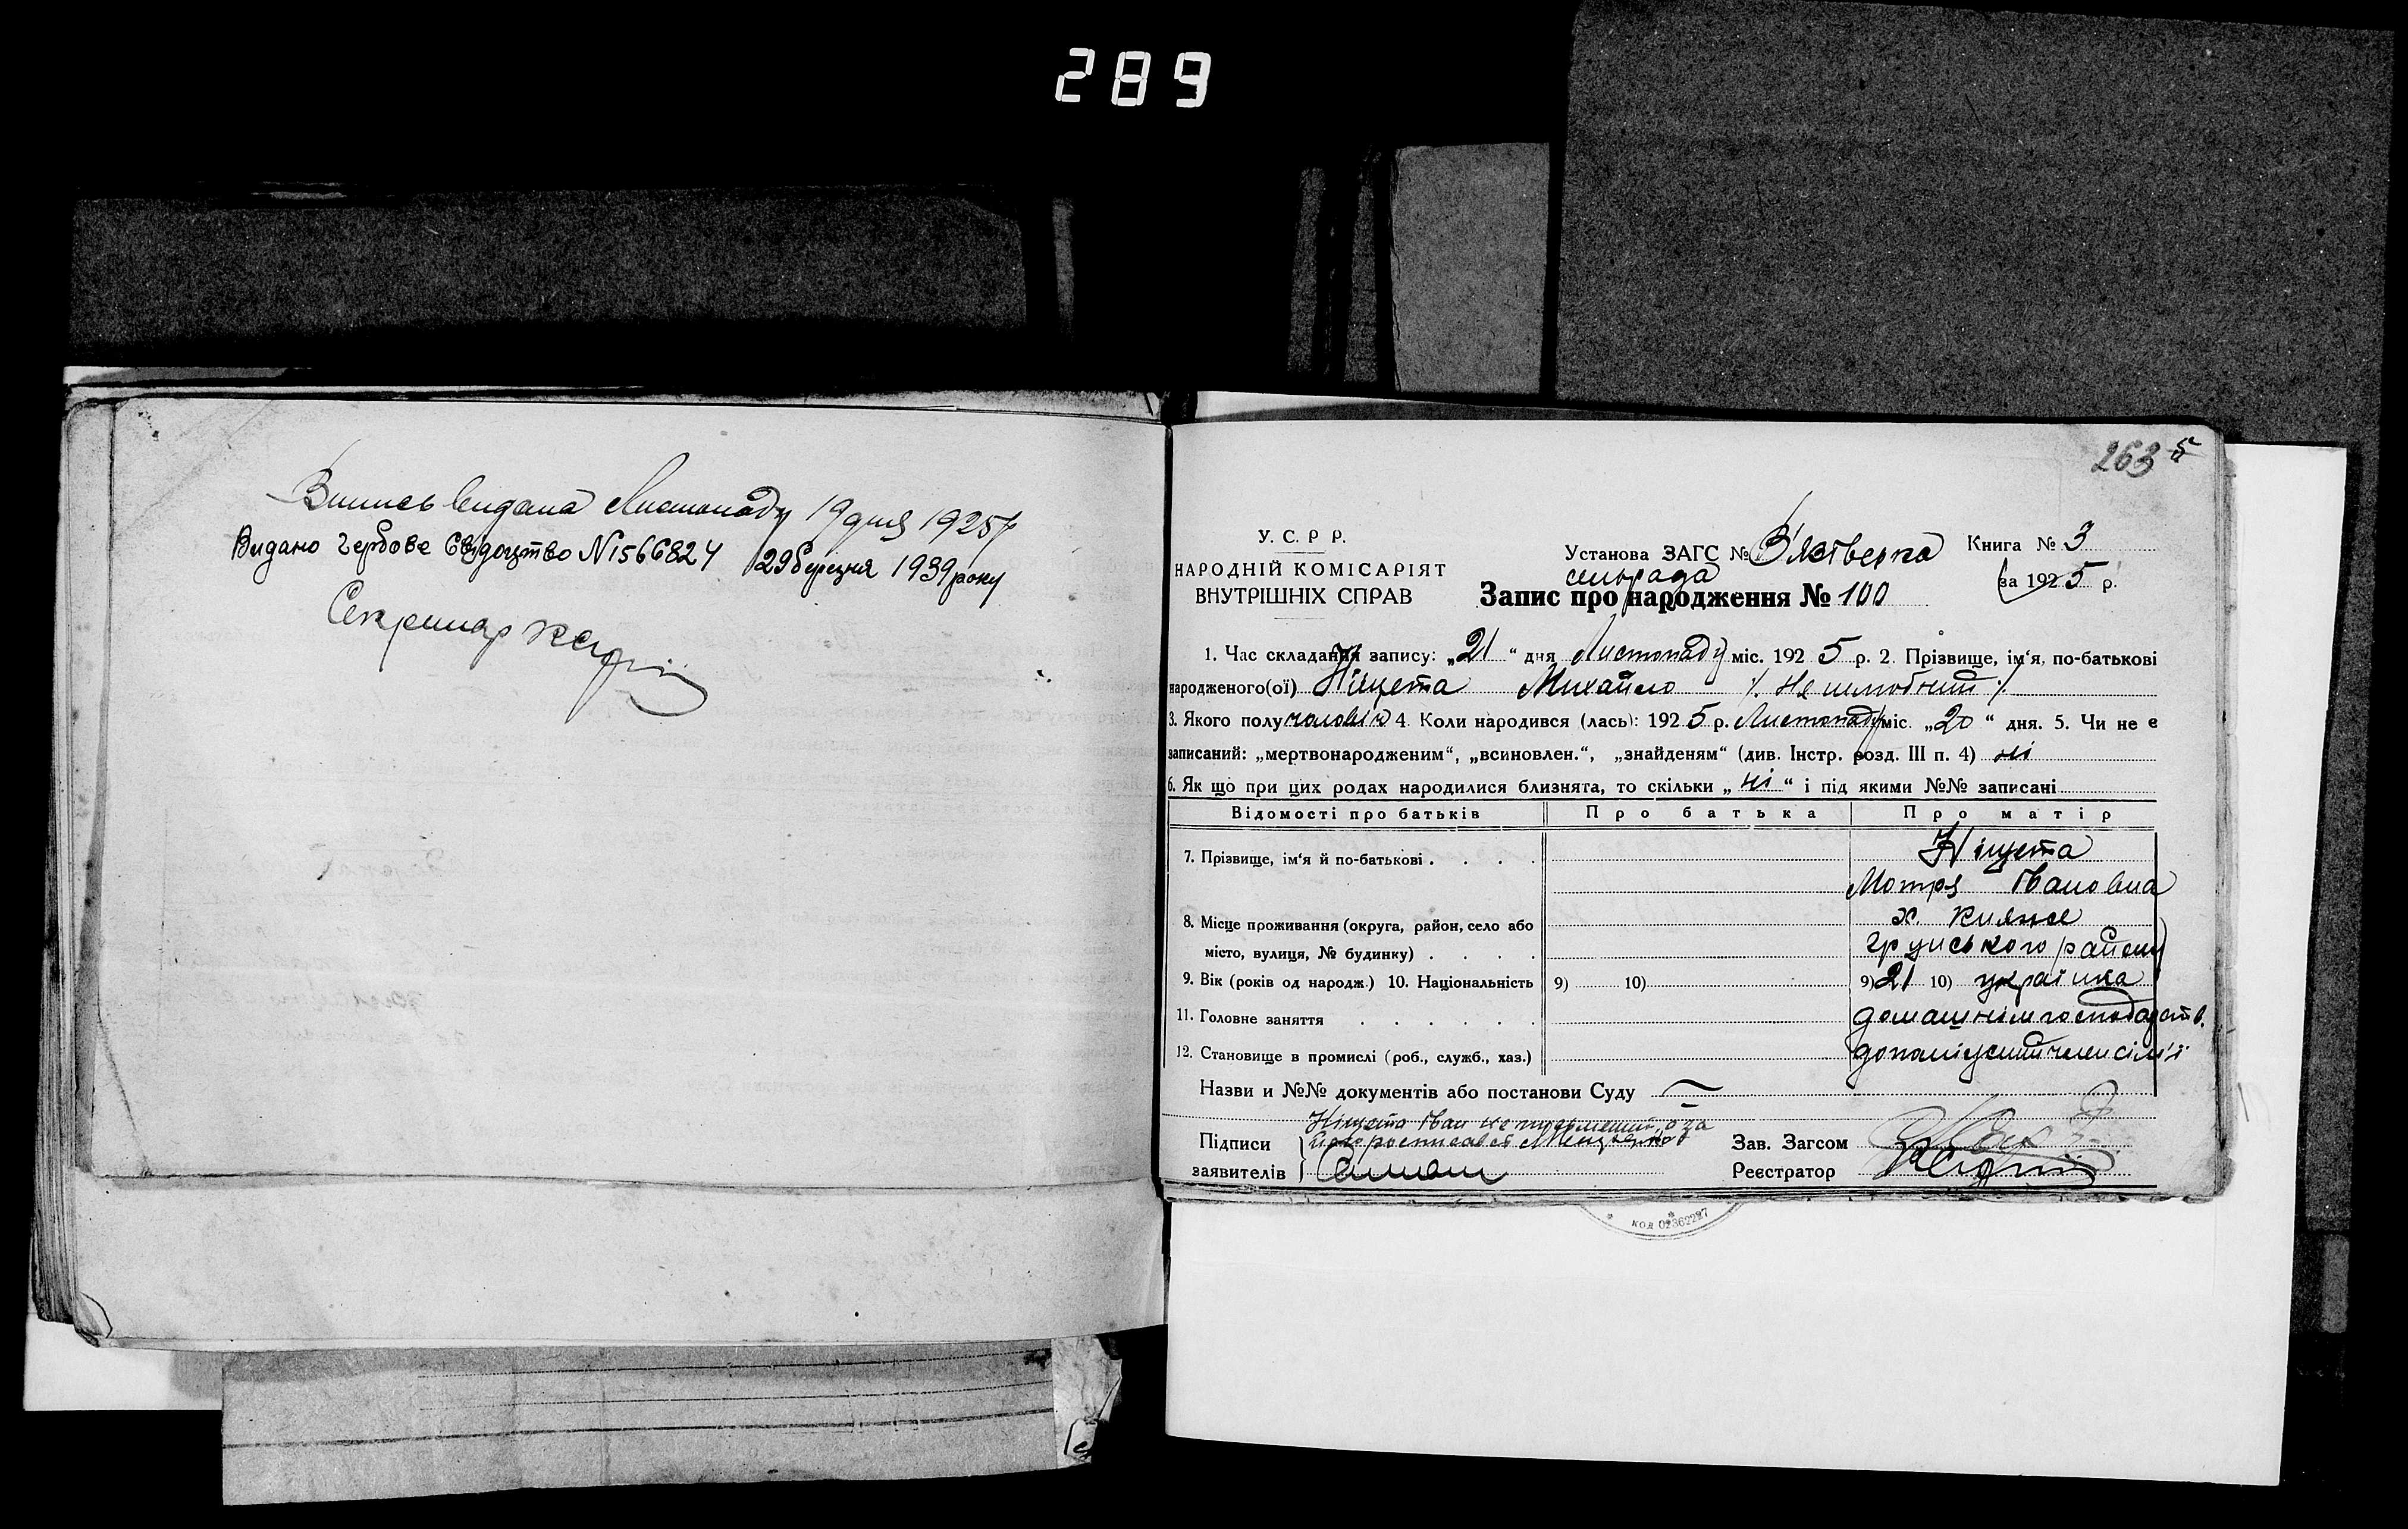 289
Випись видана Листопаду 19 дня 1925 р
Видано гербове Свідоцтво N1566824 29 березня 1939 року
Секретар
263 5
У. С. Р Р.
НАРОДНІЙ КОМІСАРІЯТ
ВНУТРІШНІХ СПРАВ
Установа ЗАГС №
сельрада
Книга № 3
за 1925 р.
Запис про народження № 100
1. Час складання запису: „21“ дня Листопаду міс. 1925 р. 2. Прізвище, ім'я, по-батькові
народженого(ої) Ніщета Михайло /. Не шлюбний ./
3. Якого полу чоловік 4. Коли народився (лась): 1925 р. Листопаду міс. „20“ дня. 5. Чи не є
записаний: „мертвонародженим“, „всиновлен.“, „знайденям“ (див. Інстр. розд. III п. 4) ні
6. Як що при цих родах народилися близнята, то скільки „ні“ і під якими №№ записані
Відомості про батьків Про батька Про матір
7. Прізвище, ім'я й по-батькові . . . . Ніщета
Мотря Івановна
8. Місце проживання (округа, район, село або х. Княже
місто, вулиця, № будинку) . . . . грунського району
9. Вік (років од народж.) 10. Національність 9) 10) 9) 21 10) українка
11. Головне заняття . . . . . . домашнім господарств.
12. Становище в промислі (роб., служб., хаз.) допоміжний член сім'ї
Назви и №№ документів або постанови Суду
Ніщета Іван не письменний, а за
Підписи його росписався
заявителів
Зав. Загсом
Реєстратор
КОД 02362287